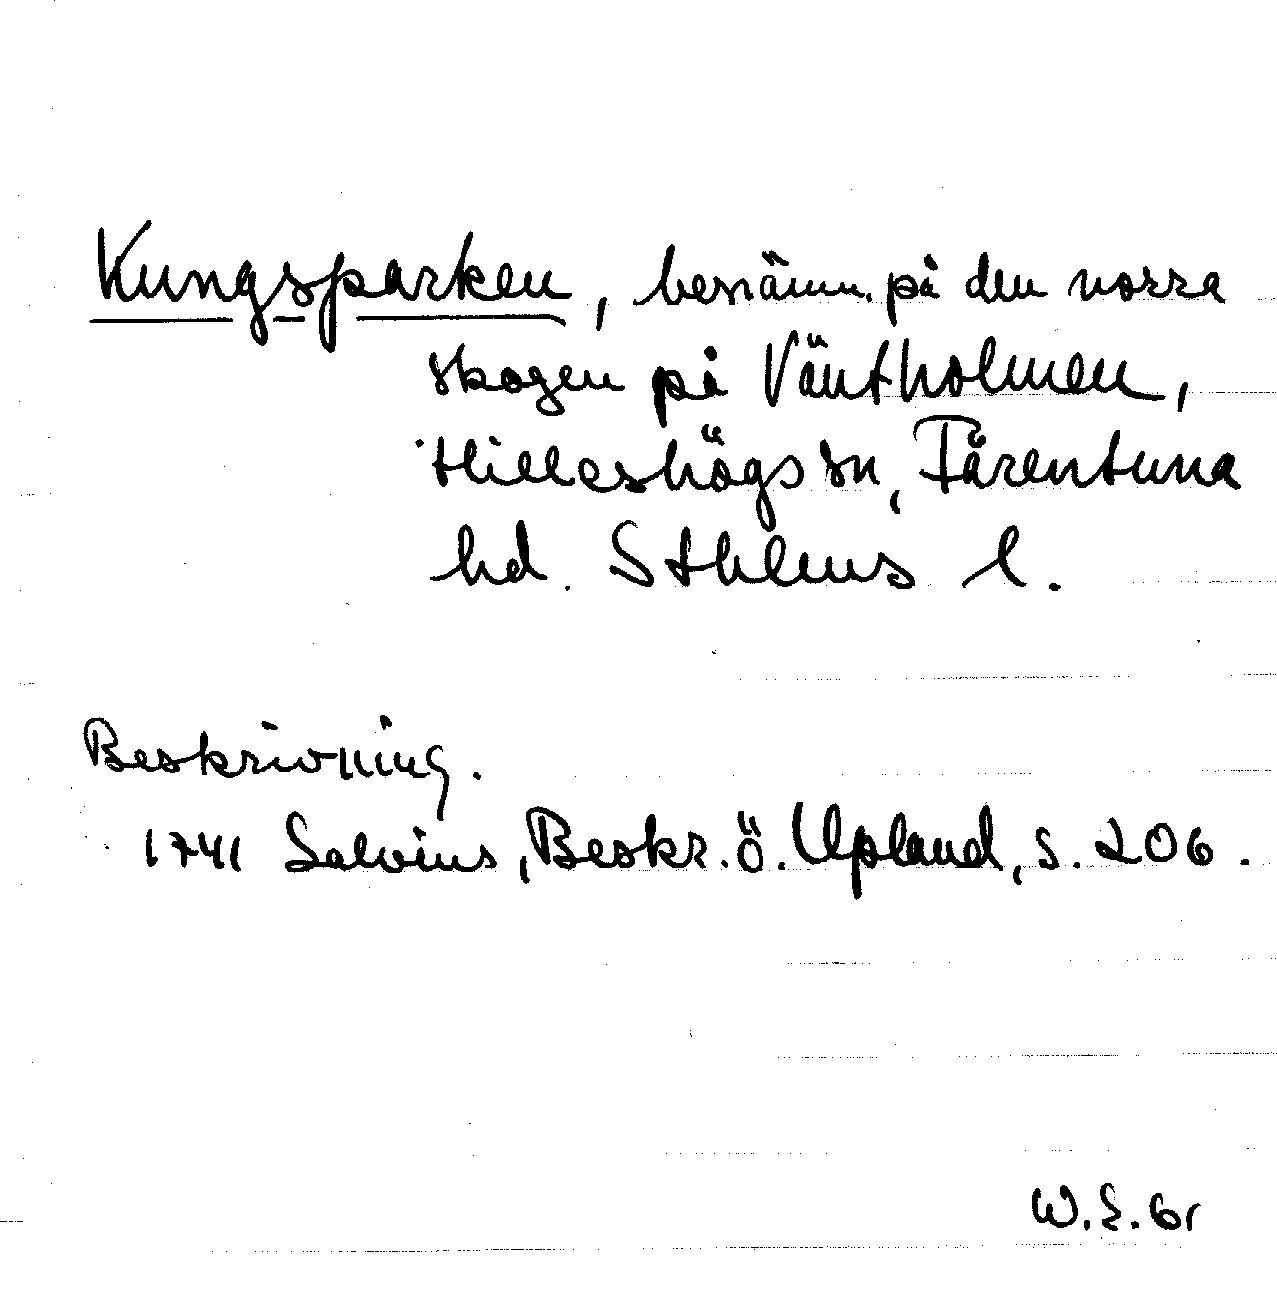 Kungsparken, benämn. på den norra
skogen på Väntholmen,
Hilleshögs sn, Färentuna
hd. Sthlms l.
Beskrivning.
1741 Salvius, Beskr. ö. Upland, s. 206.
W.E. 61